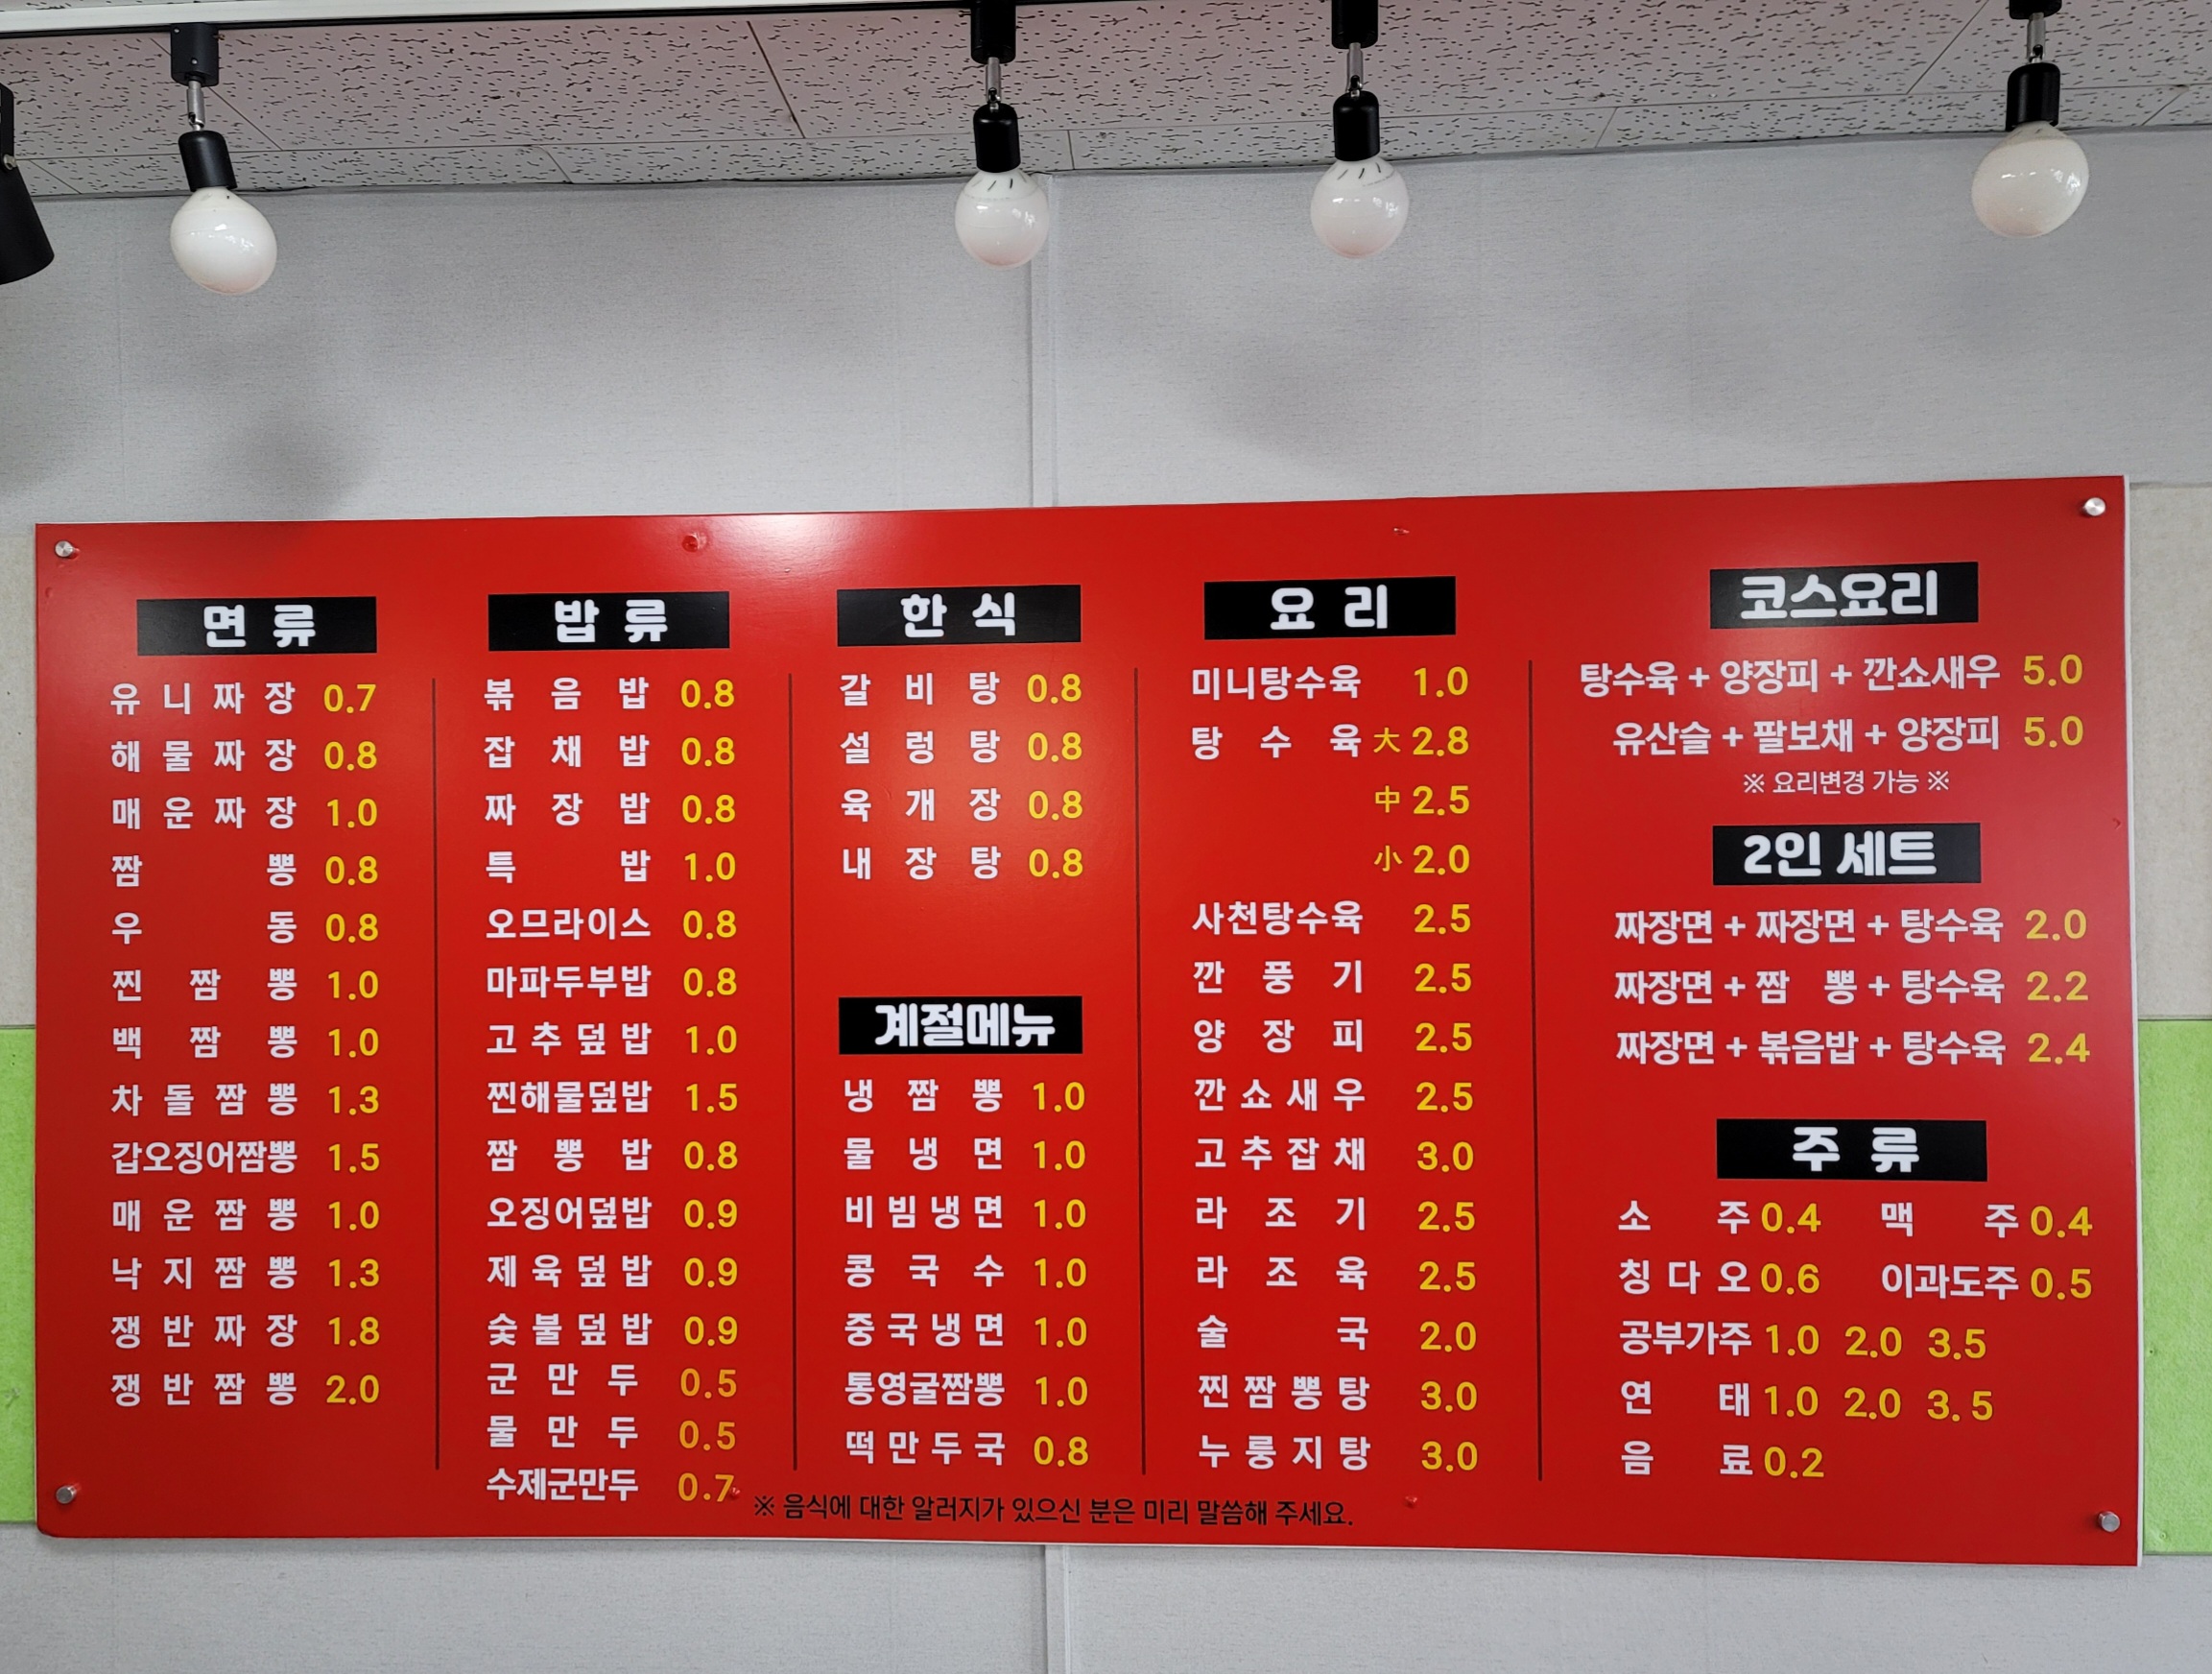 면 류
유니짜장 0.7
해물짜장 0.8
매운짜장 1.0
짬 뽕 0.8
우 동 0.8
찐 짬 뽕 1.0
백 짬 뽕 1.0
차돌짬뽕 1.3
갑오징어짬뽕 1.5
매운짬뽕 1.0
낙지짬뽕 1.3
쟁반짜장 1.8
쟁반짬뽕 2.0
밥 류
볶 음 밥 0.8
잡 채 밥 0.8
짜 장 밥 0.8
특 밥 1.0
오므라이스 0.8
마파두부밥 0.8
고추덮밥 1.0
찐해물덮밥 1.5
짬 뽕 밥 0.8
오징어덮밥 0.9
제육덮밥 0.9
숯불덮밥 0.9
군 만 두 0.5
물 만 두 0.5
수제군만두 0.7
한 식
갈 비 탕 0.8
설 렁 탕 0.8
육 개 장 0.8
내 장 탕 0.8
계절메뉴
냉 짬 뽕 1.0
물 냉 면 1.0
비빔냉면 1.0
콩 국 수 1.0
중국냉면 1.0
통영굴짬뽕 1.0
떡만두국 0.8
요 리
미니탕수육 1.0
탕 수 육 大 2.8
中 2.5
小 2.0
사천탕수육 2.5
깐 풍 기 2.5
양 장 피 2.5
깐쇼새우 2.5
고추잡채 3.0
라 조 기 2.5
라 조 육 2.5
술 국 2.0
찐짬뽕탕 3.0
누룽지탕 3.0
코스요리
탕수육 + 양장피 + 깐쇼새우 5.0
유산슬 + 팔보채 + 양장피 5.0
※ 요리변경 가능 ※
2인 세트
짜장면 + 짜장면 + 탕수육 2.0
짜장면 + 짬 뽕 + 탕수육 2.2
짜장면 + 볶음밥 + 탕수육 2.4
주 류
소 주 0.4 맥 주 0.4
칭 다 오 0.6 이과도주 0.5
공부가주 1.0 2.0 3.5
연 태 1.0 2.0 3.5
음 료 0.2
※ 음식에 대한 알러지가 있으신 분은 미리 말씀해 주세요.